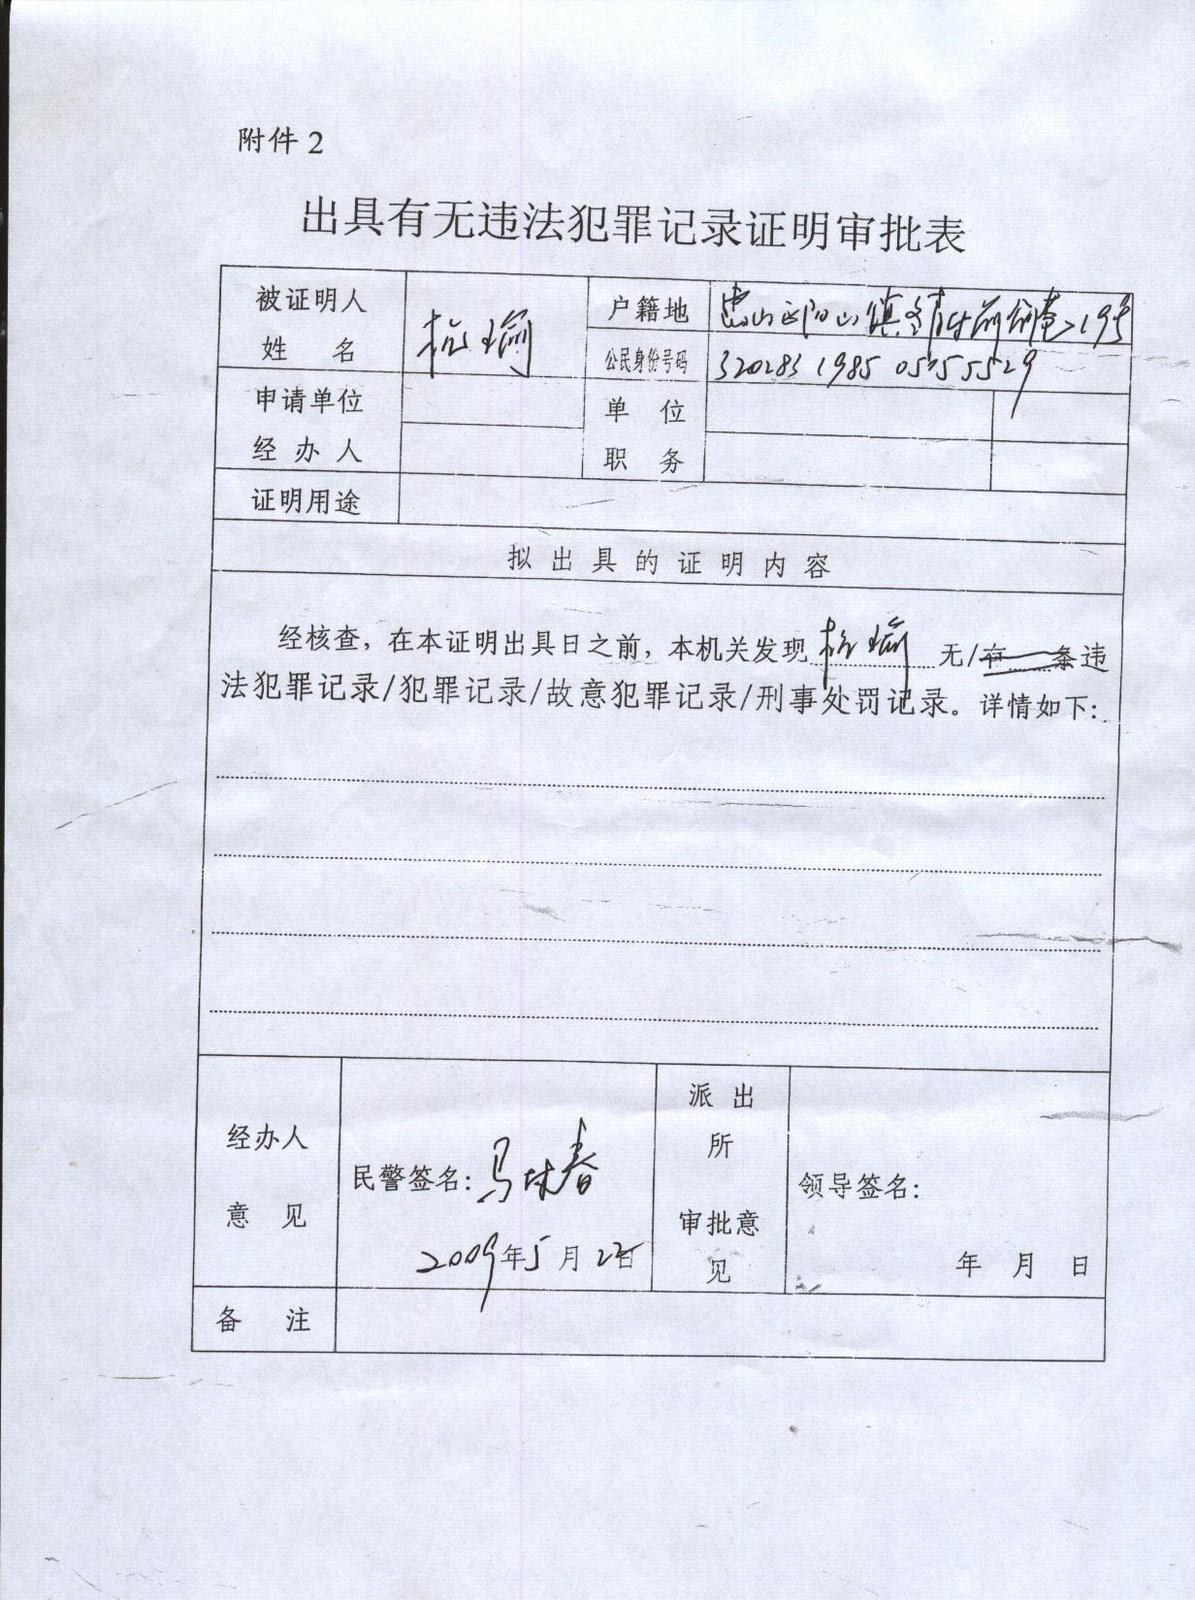 附件2
出具有无违法犯罪记录证明审批表
被证明人
姓 名
杭瑜
户籍地
山 山镇 村前 19号
公民身份号码
320283 1985
申请单位
经办人
单 位
职 务
证明用途
拟出具的证明内容
经核查，在本证明出具日之前，本机关发现 杭瑜 无/有 条违
法犯罪记录/犯罪记录/故意犯罪记录/刑事处罚记录。详情如下：
经办人
意 见
民警签名：马 春
2009年5月22日
派出
所
审批意
见
领导签名：
年 月 日
备 注